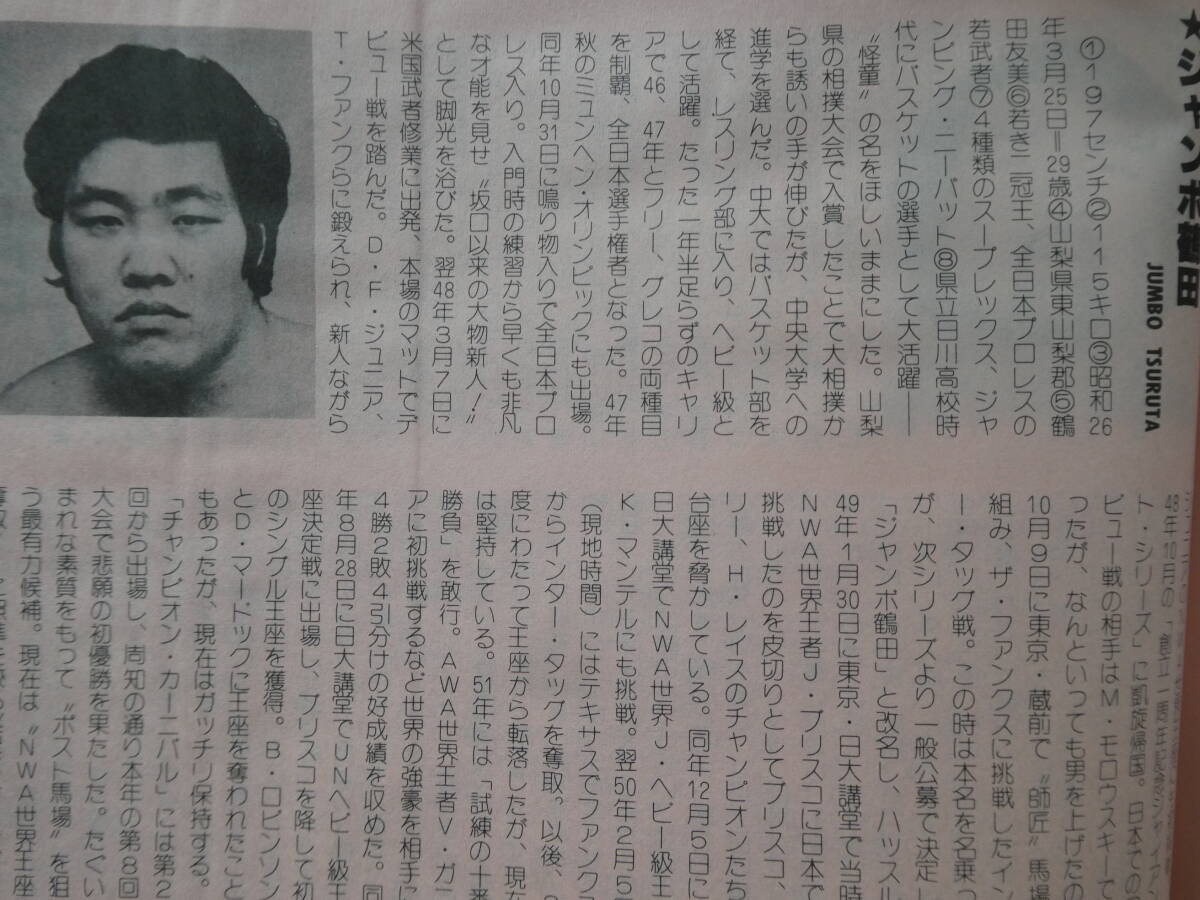 ★ジャンボ鶴田
JUMBO TSURUTA
①197センチ②115キロ③昭和26
年3月25日＝29歳④山梨県東山梨郡⑤鶴
田友美⑥若き二冠王、全日本プロレスの
若武者⑦4種類のスープレックス、ジャ
ンピング・ニーパット⑧県立日川高校時
代にバスケットの選手として大活躍──
〝怪童〟の名をほしいままにした。山梨
県の相撲大会で入賞したことで大相撲か
らも誘いの手が伸びたが、中央大学への
進学を選んだ。中大ではバスケット部を
経て、レスリング部に入り、ヘビー級と
して活躍。たった一年半足らずのキャリ
アで46、47年とフリー、グレコの両種目
を制覇、全日本選手権者となった。47年
秋のミュンヘン・オリンピックにも出場。
同年10月31日に鳴り物入りで全日本プロ
レス入り。入門時の練習から早くも非凡
な才能を見せ〝坂口以来の大物新人！〟
として脚光を浴びた。翌48年3月7日に
米国武者修業に出発、本場のマットでデ
ビュー戦を踏んだ。D・F・ジュニア、
T・ファンクらに鍛えられ、新人ながら
48年10月の「創立一周年記念ジャイアン
ト・シリーズ」に凱旋帰国。日本での
ビュー戦の相手はM・モロウスキーで
ったが、なんといっても男を上げたの
10月9日に東京・蔵前で〝師匠〟馬場
組み、ザ・ファンクスに挑戦したイン
ー・タッグ戦。この時は本名を名乗っ
が、次シリーズより一般公募で決定し
「ジャンボ鶴田」と改名し、ハッスル
49年1月30日に東京・日大講堂で当時
NWA世界王者J・ブリスコに日本で
挑戦したのを皮切りとしてブリスコ、
リー、H・レイスのチャンピオンたち
台座を脅かしている。同年12月5日に
日大講堂でNWA世界J・ヘビー級王
K・マンテルにも挑戦。翌50年2月5
（現地時間）にはテキサスでファンク
からインター・タッグを奪取。以後、
度にわたって王座から転落したが、現な
は堅持している。51年には「試練の十番
勝負」を敢行。AWA世界王者V・ガニ
アに初挑戦するなど世界の強豪を相手に
4勝2敗4引分けの好成績を収めた。同
年8月28日に日大講堂でUNヘビー級王
座決定戦に出場し、ブリスコを降して初
のシングル王座を獲得。B・ロビンソン
とD・マードックに王座を奪われたこと
もあったが、現在はガッチリ保持する。
「チャンピオン・カーニバル」には第2
回から出場し、周知の通り本年の第8回
大会で悲願の初優勝を果たした。たぐい
まれな素質をもって〝ポスト馬場〟を狙
う最有力候補。現在は〝NWA世界王座